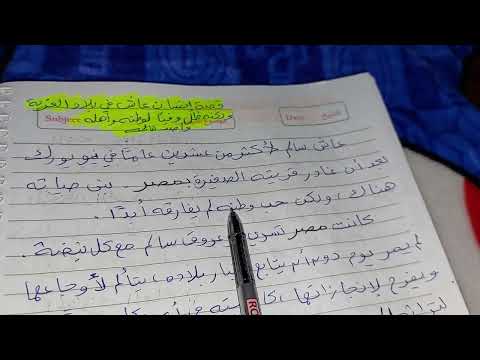 قصة إنسان عاش فى بلاد الغربة
ولكنه ظل وفيا لوطنه وأهله
Subject
Date
عاش سالم لأكثر من عشرين عامًا في نيويورك
بعد أن غادر قريته الصغيرة بمصر. بنى حياته
هناك، ولكن حب وطنه لم يفارقه أبدًا.
كانت مصر تسرى فى عروق سالم مع كل نبضة.
لم يمر يوم دون أن يتابع أخبار بلاده، يتألم لأوجاعها
ويفرح لإنجازاتها،